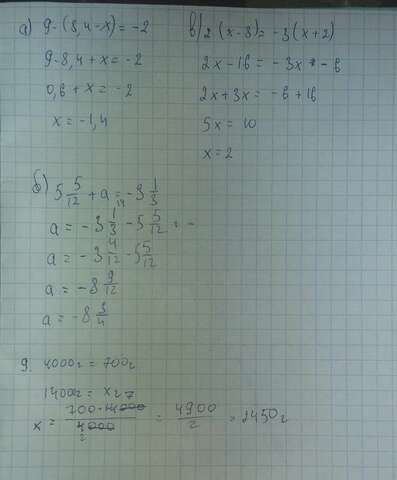 а) 9-(8,4-x)=-2
9-8,4+x=-2
0,6+x=-2
x=-1,4
в) 2(x-8)=-3(x+2)
2x-16=-3x-6
2x+3x=-6+16
5x=10
x=2
б) 5 5/12 + a = -3 1/3
a = -3 1/3 - 5 5/12 = -
a = -3 4/12 - 5 5/12
a = -8 9/12
a = -8 3/4
9. 4000г = 700г
14000г = x г
x = 700·14000/4000 = 4900/2 = 2450г